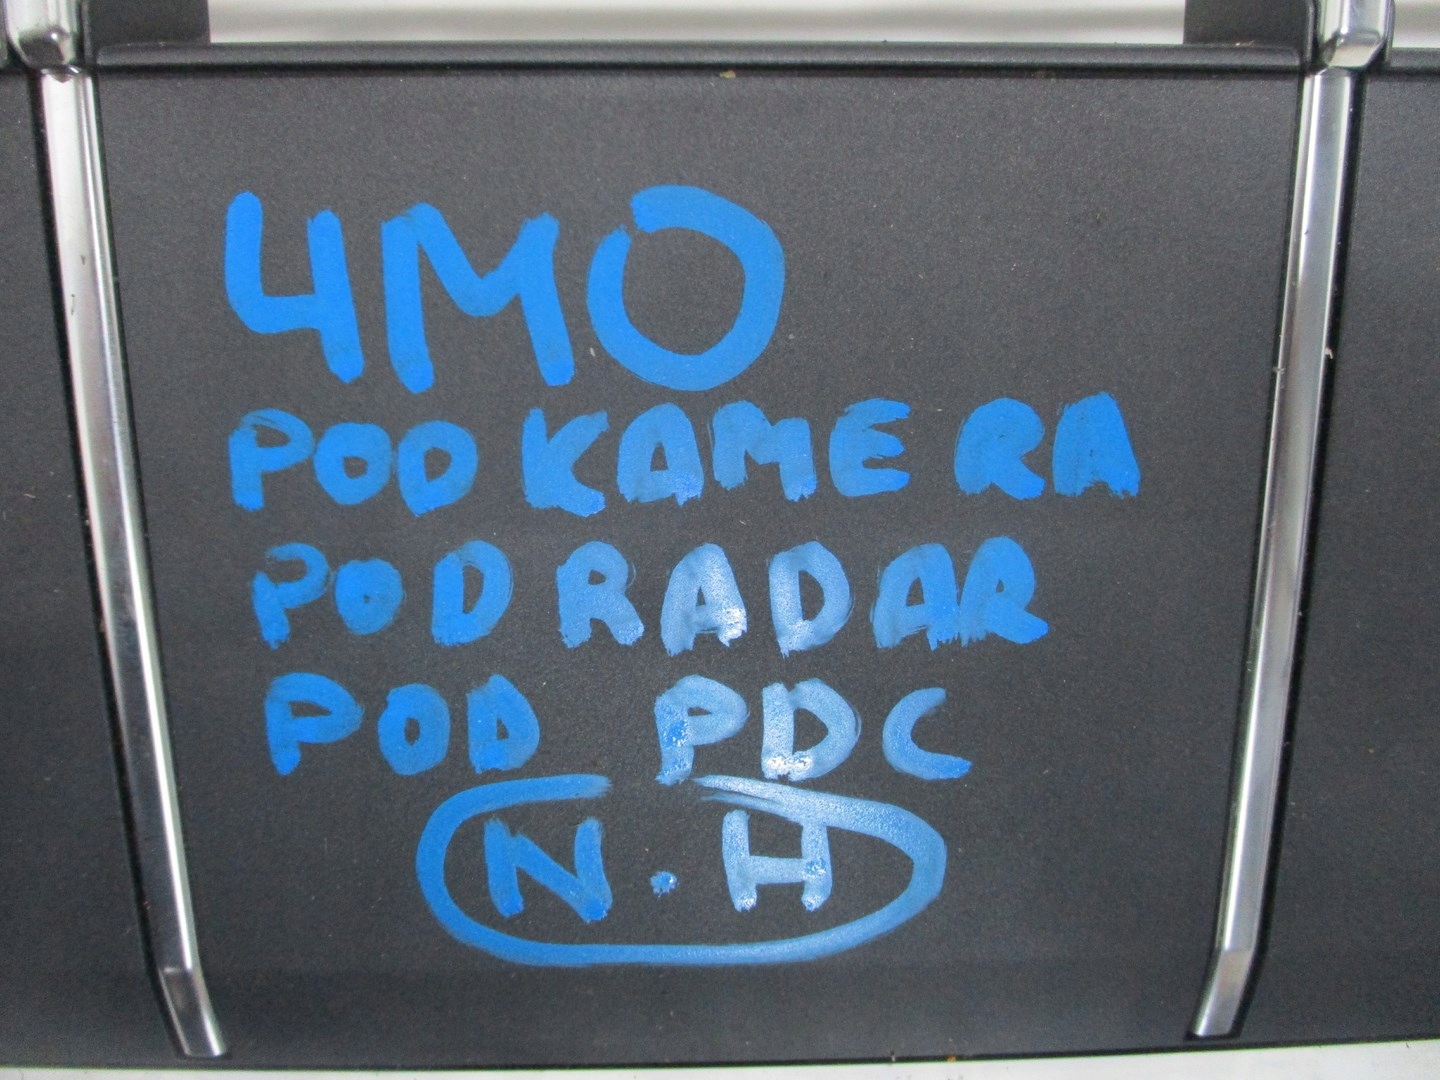 4MO
POD KAMERA
POD RADAR
POD PDC
N.H